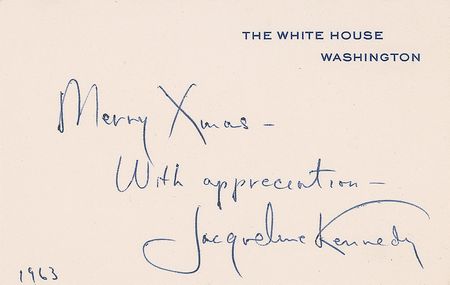 THE WHITE HOUSE
WASHINGTON
Merry Xmas —
With appreciation —
Jacqueline Kennedy
1963